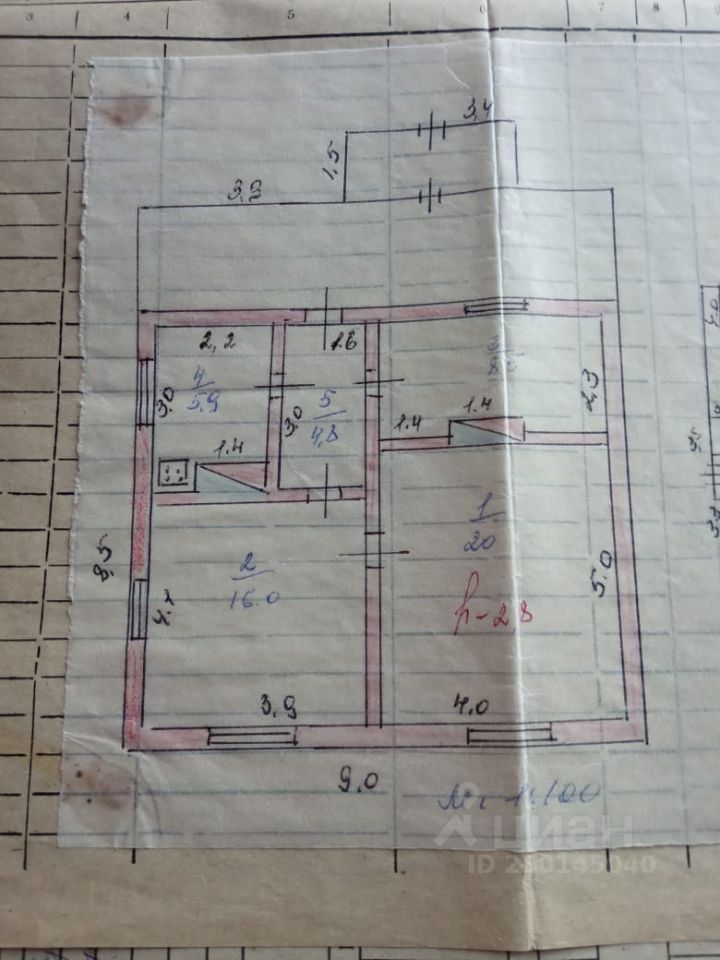 3 4 5 6 7 8
3,4
1,5
3,3
2,2
1.6
4
5,9
3,0
5
4,8
3,0
1.4
1.4
1.4
2,3
8,5
1
20
5.0
2
16.0
h-2,8
3,9
4.0
9.0
М 1:100
циан
ID 280145040